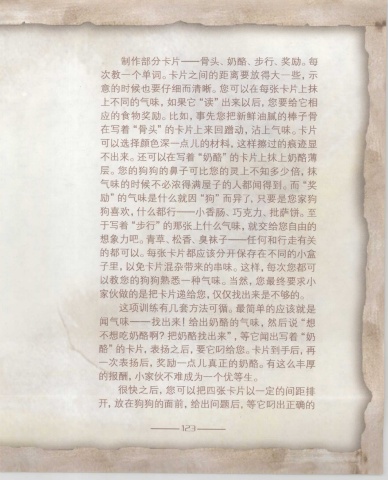 制作部分卡片——骨头、奶酪、步行、奖励。每
次教一个单词。卡片之间的距离要放得大一些，示
意的时候也要仔细而清晰。您可以在每张卡片上抹
上不同的气味，如果它“读”出来以后，您要给它相
应的食物奖励。比如，事先您把新鲜油腻的棒子骨
在写着“骨头”的卡片上来回蹭动，沾上气味。卡片
可以选择颜色深一点儿的材料，这样擦过的痕迹显
不出来。还可以在写着“奶酪”的卡片上抹上奶酪薄
层。您的狗狗的鼻子可比您的灵上不知多少倍，抹
气味的时候不必浓得满屋子的人都闻得到。而“奖
励”的气味是什么就因“狗”而异了，只要是您家狗
狗喜欢，什么都行——小香肠、巧克力、批萨饼。至
于写着“步行”的那张上什么气味，就交给您自由的
想象力吧。青草、松香、臭袜子——任何和行走有关
的都可以。每张卡片都应该分开保存在不同的小盒
子里，以免卡片混杂带来的串味。这样，每次您都可
以教您的狗狗熟悉一种气味。当然，您最终要求小
家伙做的是把卡片递给您，仅仅找出来是不够的。
这项训练有几套方法可循。最简单的应该就是
闻气味——找出来！给出奶酪的气味，然后说“想
不想吃奶酪啊？把奶酪找出来”，等它闻出写着“奶
酪”的卡片，表扬之后，要它叼给您。卡片到手后，再
一次表扬后，奖励一点儿真正的奶酪。有这么丰厚
的报酬，小家伙不难成为一个优等生。
很快之后，您可以把四张卡片以一定的间距排
开，放在狗狗的面前，给出问题后，等它叼出正确的
123